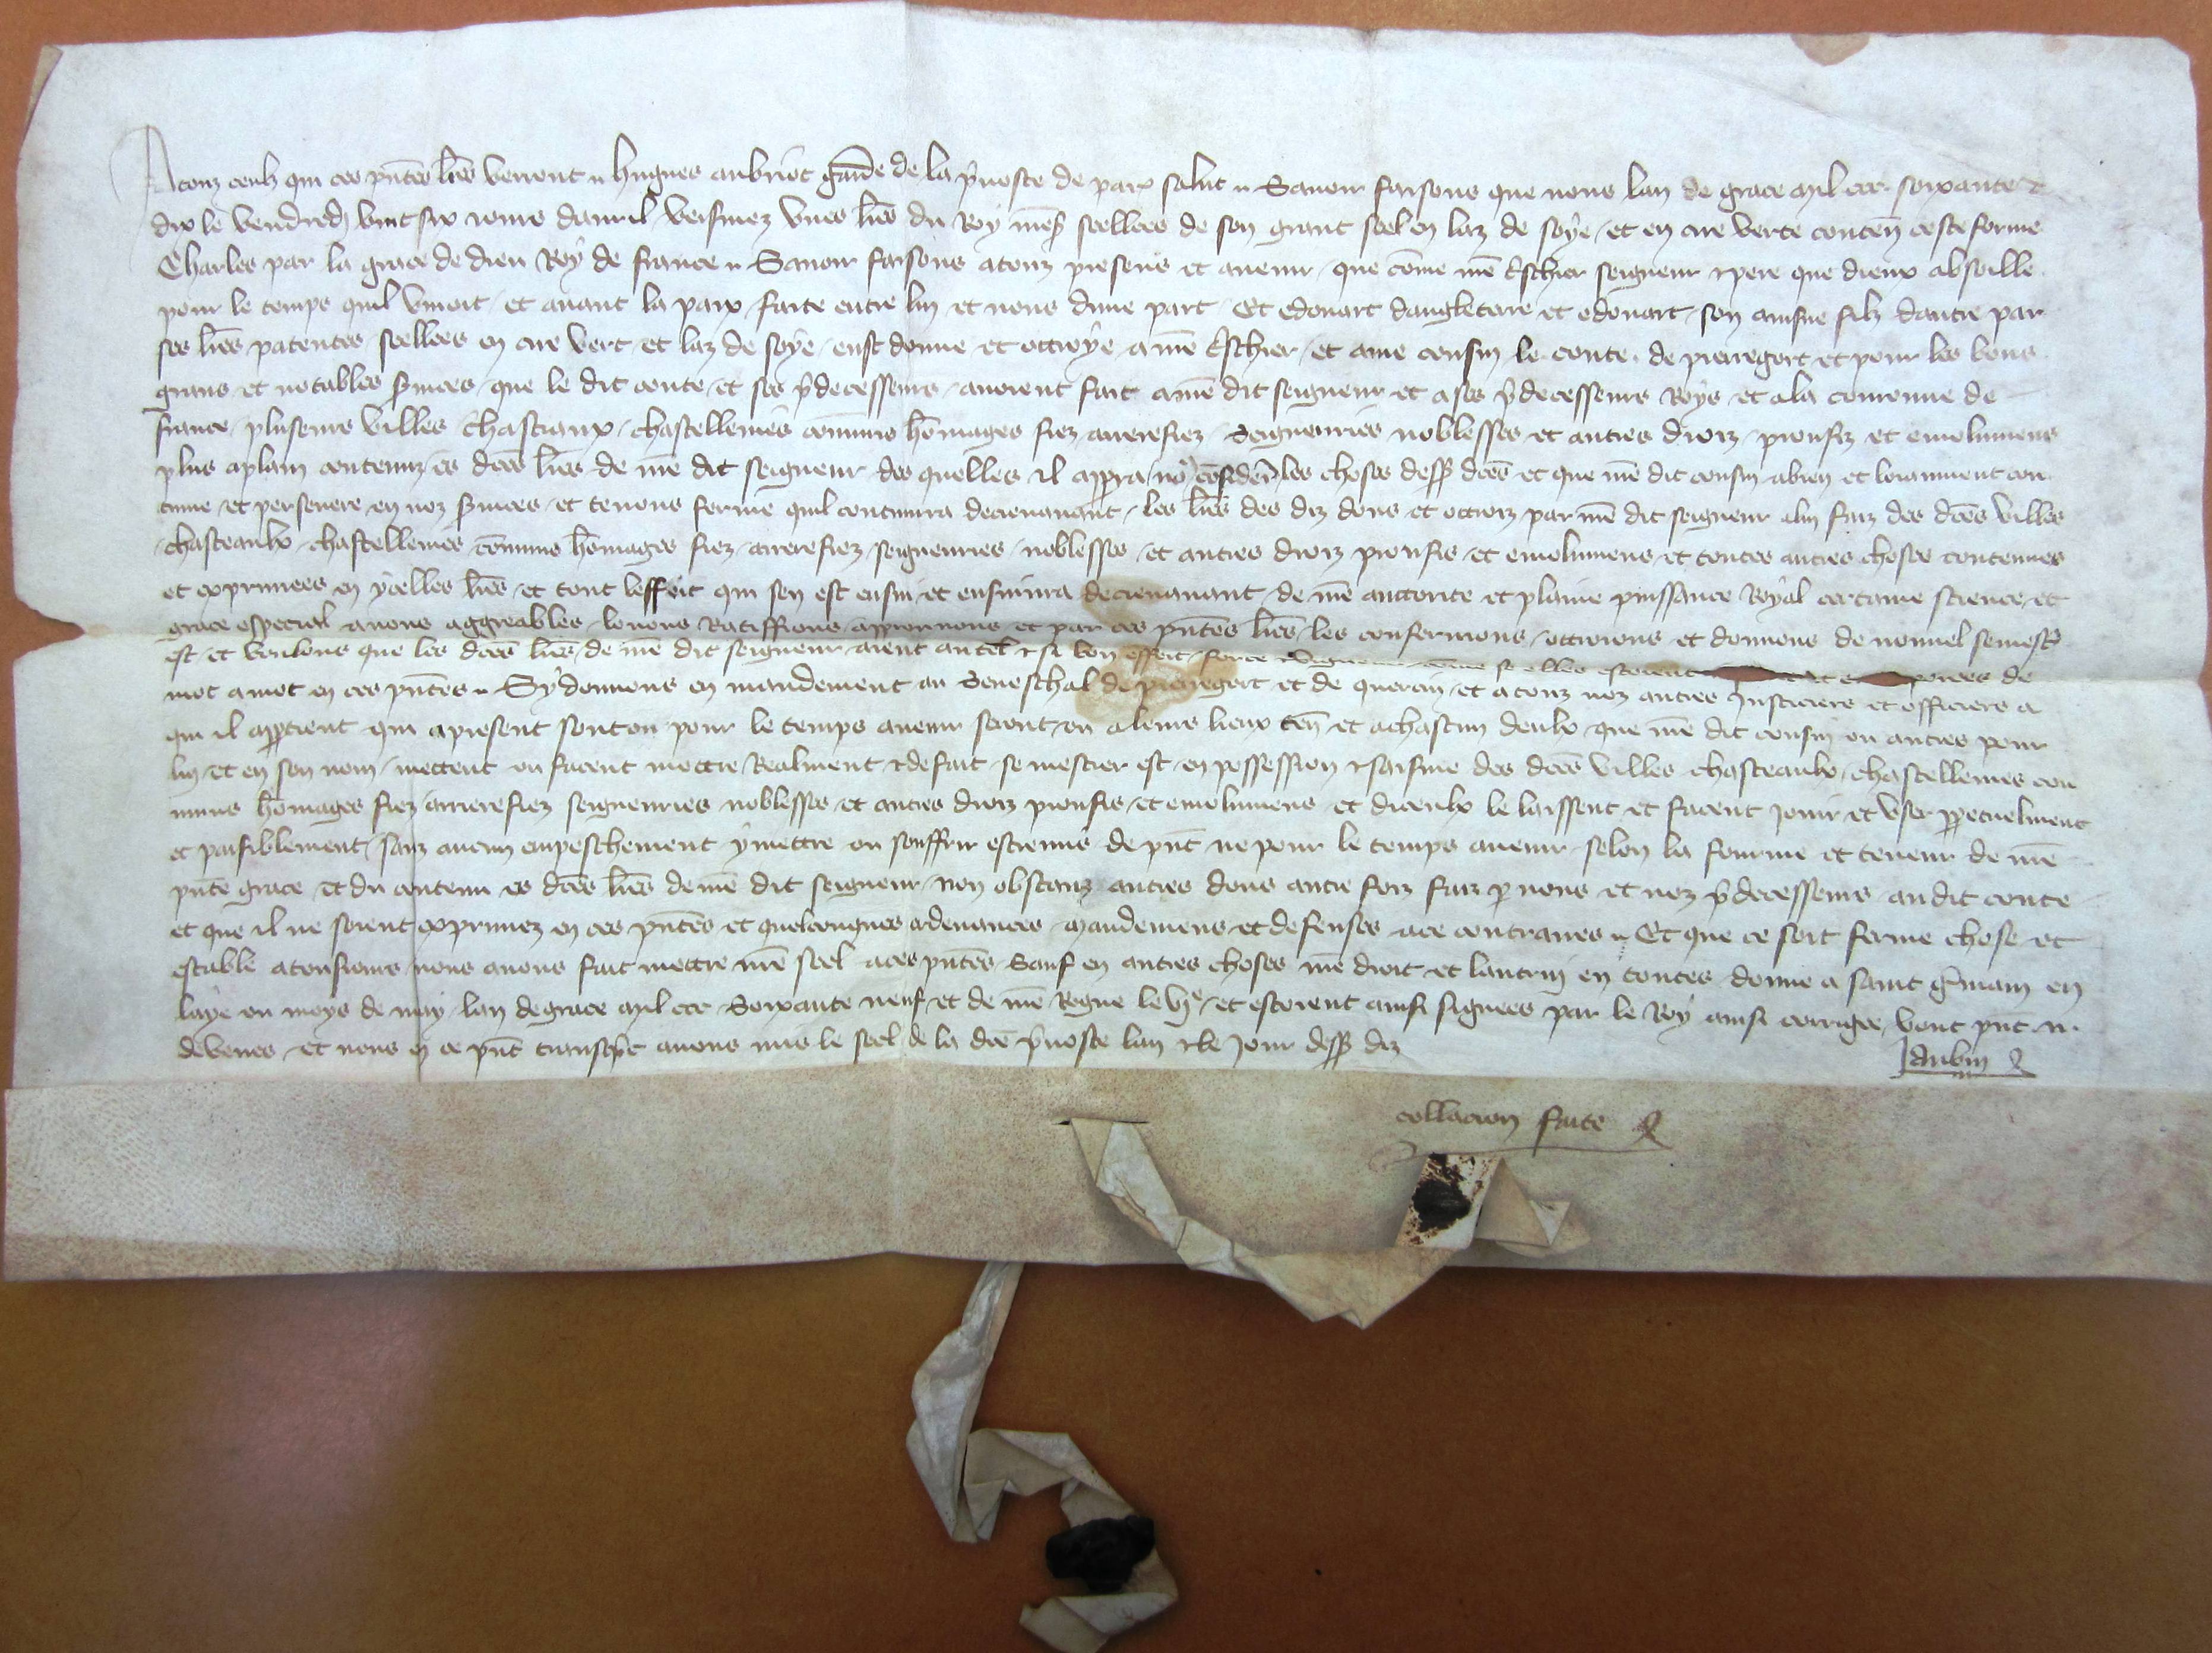 A touz ceulx qui ces pñtes lr̃es verront hugues aubriot garde de la p̃uoste de paris salut Sauoir faisons que nous lan de grace mil ccc soixante &
dix le vendredj vint six iours dauril veismez vnes lr̃es du Roy nr̃eS seellees de son grant seel en laz de soye et en cire verte conteñ ceste forme
Charles par la grace de dieu Roy de france Sauoir faisons a touz presens et auenir que cõme nr̃e tr̃schier seigneur & pere que dieux absoille
pour le temps quil viuoit et auant la paix faite entre luy et nous dune part Et edouart dangleterre et edouart son ainsne filz dautre par
ses lr̃es patentes seellees en cire vert et laz de soye eust donne et ottroye a nr̃e tr̃schier et ame cousin le conte de pierregort et pour les bons
grans et notables s̃uices que le dit conte et ses p̃decesseurs auoient fait a nr̃e dit seigneur et a ses p̃decesseurs Roys et a la couronne de
france pluseurs villes chastiaux chastellenies cõmuns hõmages fiez arrerefiez Seigneuries noblesses et autres droiz proufiz et emolumens
plus aplain contenuz es dc̃es lr̃es de nr̃e dit seigneur des quelles il apperra no9 cõsiderãs les choses dess9 dc̃es et que nr̃e dit cousin a bien et loiaument con
tinue et perseuere en noz s̃uices et tenons ferme quil continura decienauant les lr̃es des diz dons et ottroiz par nr̃e dit seigneur a lui faiz des dc̃es villes
chasteaulx chastellenies cõmuns hõmages fiez arrerefiez seigneuries noblesses et autres droiz proufis et emolumens et toutes autres choses contenues
et exprimees en ycelles lr̃es et tout leffeit qui sen est ensui et ensuiura decienauant de nr̃e auttorite et plaine puissance Royal certaine science et
grace especial auons aggreables louons Ratiffions approuuons et par ces pñtes lr̃es les confermons ottroions et donnons de nouuel se mestr̃
est et voulons que les dc̃es lr̃es de nr̃e dit seigneur aient autel & si bon effeit force & vigueur cõme se elles estoient porees de
mot a mot en ces pñtes Sy donnons en mandement au Seneschal de pierregort et de quercin et a touz noz autres Justiciers et officiers a
qui il appartient qui a present sont ou pour le temps auenir seront ou a leurs lieux teñ et a chascun deulx que nr̃e dit cousin ou autres pour
luy et en son nom mettent ou facent mettre Realment & de fait se mestier est en possession & saisine des dc̃es villes chasteaulx chastellenies con
muns hõmages fiez arrierefiez seigneuries noblesses et autres droiz proufis et emolumens et diceulx le laissent et facent jouir et vser ppetuelment
et paisiblement sanz aucun empeschement y mettre ou souffrir estre mis de pñt ne pour le temps auenir selon la fourme et teneur de nr̃e
pñte grace et du contenu es dc̃es lr̃es de nr̃e dit seigneur non obstanz autres dons autre foiz faiz p nous et noz p̃decesseurs audit conte
et que il ne soient exprimez en ces pñtes et quelconques ordenances mandemens et defenses a ce contraires Et que ce soit ferme chose et
estable a tousiours nous auons fait mettre nr̃e seel a ces pñtes Sauf en autres choses nr̃e droit et lautruy en toutes donne a saint g̃main en
laye ou moys de may lan de grace mil ccc Soixante neuf et de nr̃e Regne le vje et estoient ainsi signees par le Roy ainsi corrigee vont pñt N.
de veres et nous en ce pñt transcp̃t auons mis le seel de la dc̃e p̃uoste lan & le jour dess9 diz
collacion faite